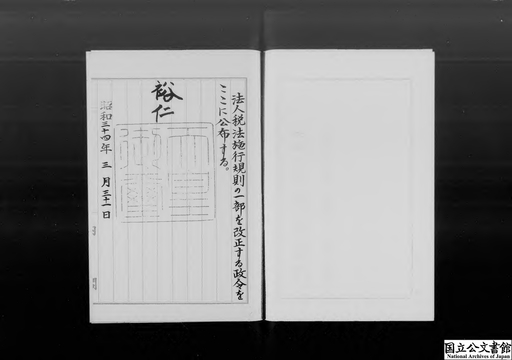 法人税法施行規則の一部を改正する政令を
ここに公布する。
裕仁
天皇
御璽
昭和三十四年三月三十一日
国立公文書館
National Archives of Japan